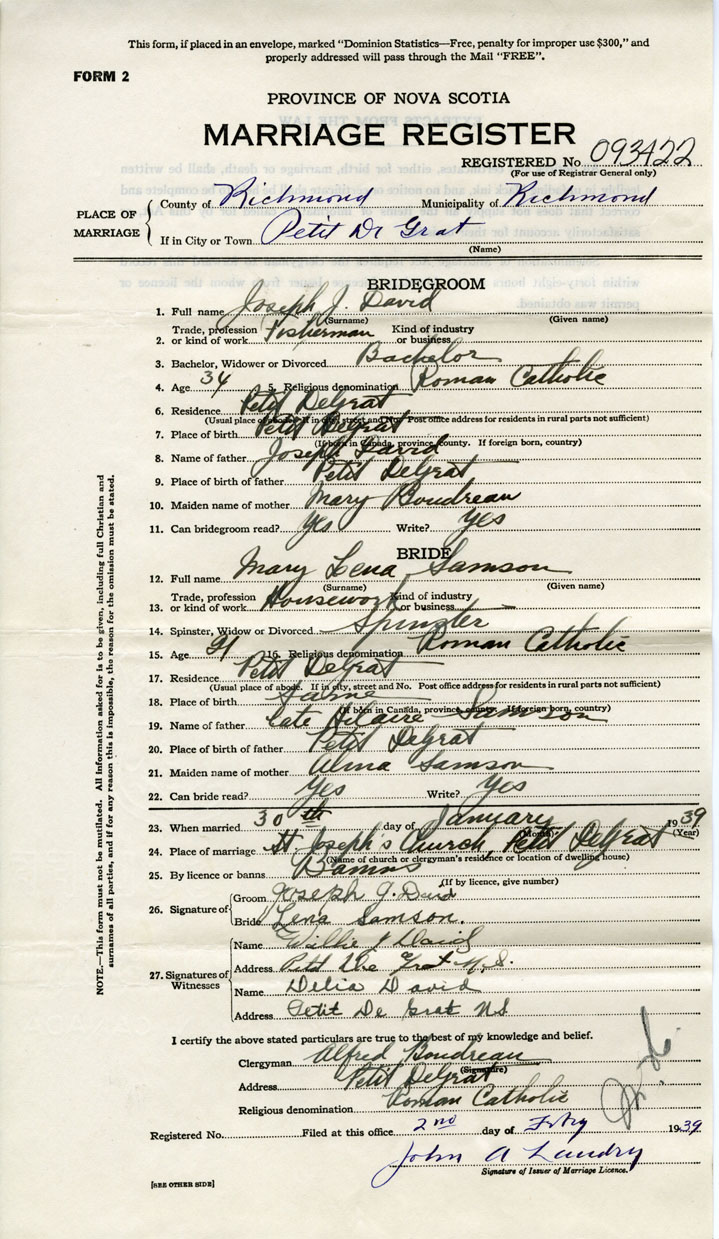 This form, if placed in an envelope, marked "Dominion Statistics—Free, penalty for improper use $300," and
properly addressed will pass through the Mail "FREE".
FORM 2
PROVINCE OF NOVA SCOTIA
MARRIAGE REGISTER
REGISTERED No 093422
(For use of Registrar General only)
PLACE OF MARRIAGE
County of Richmond Municipality of Richmond
If in City or Town Petit De Grat
(Name)
BRIDEGROOM
1. Full name Joseph J. David
(Surname) (Given name)
2. Trade, profession or kind of work Fisherman Kind of industry or business
3. Bachelor, Widower or Divorced Bachelor
4. Age 34 5. Religious denomination Roman Catholic
6. Residence Petit DeGrat
(Usual place of abode. If in city, street and No. Post office address for residents in rural parts not sufficient)
7. Place of birth Petit DeGrat
(If born in Canada, province, county. If foreign born, country)
8. Name of father Joseph David
9. Place of birth of father Petit DeGrat
10. Maiden name of mother Mary Boudreau
11. Can bridegroom read? Yes Write? Yes
BRIDE
12. Full name Mary Lena Samson
(Surname) (Given name)
13. Trade, profession or kind of work Housework Kind of industry or business
14. Spinster, Widow or Divorced Spinster
15. Age 21 16. Religious denomination Roman Catholic
17. Residence Petit DeGrat
(Usual place of above. If in city, street and No. Post office address for residents in rural parts not sufficient)
18. Place of birth Same
(If born in Canada, province, county. If foreign born, country)
19. Name of father Late Hilaire Samson
20. Place of birth of father Petit DeGrat
21. Maiden name of mother Alma Samson
22. Can bride read? Yes Write? Yes
23. When married 30th day of January 1939
(Month) (Year)
24. Place of marriage St Joseph's Church, Petit DeGrat
(Name of church or clergyman's residence or location of dwelling house)
25. By licence or banns Banns
(If by licence, give number)
26. Signature of
Groom Joseph J. David
Bride Lena Samson.
27. Signatures of Witnesses
Name Willie J David
Address Petit De Grat N.S.
Name Delia David
Address Petit De Grat NS
I certify the above stated particulars are true to the best of my knowledge and belief.
Clergyman Alfred Boudreau
(Signature)
Address Petit DeGrat
Religious denomination Roman Catholic
Registered No. Filed at this office 2nd day of 1939
John A Landry
Signature of Issuer of Marriage Licence.
[SEE OTHER SIDE]
NOTE.—This form must not be mutilated. All information asked for is to be given, including full Christian and
surnames of all parties, and if for any reason this is impossible, the reason for the omission must be stated.